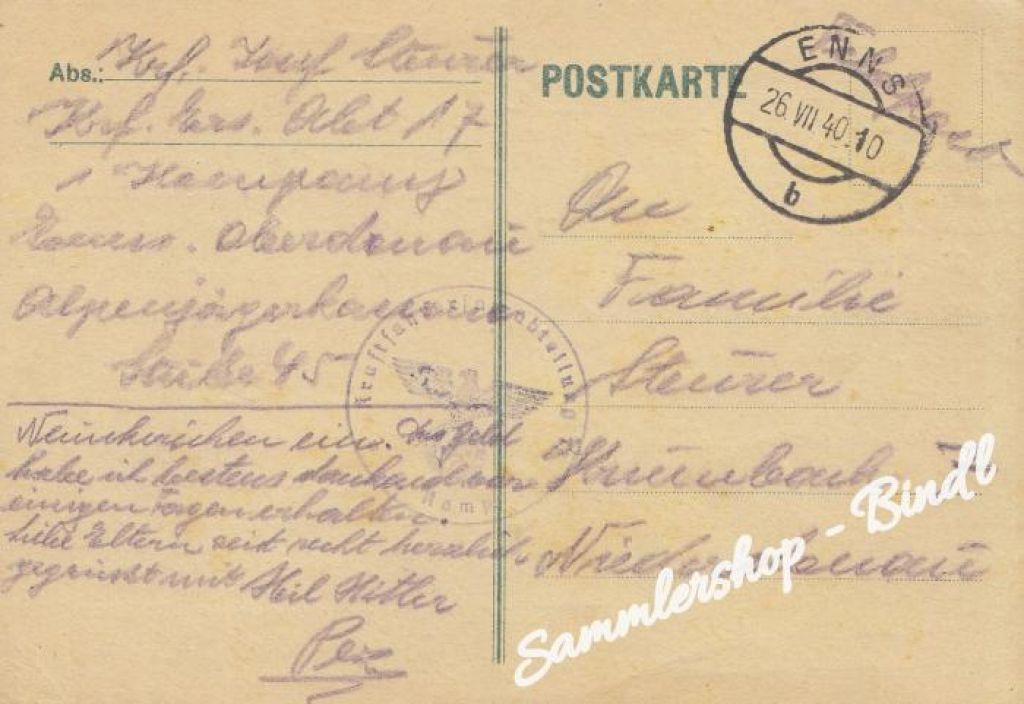 Abs.: Krf. Josef Steurer
Krf. Ers. Abt 17
1 Kompanie
Enns. Oberdonau
Alpenjägerkaserne
Stube 45
Neunkirchen ein. Das Geld
habe ich bestens dankend vor
einigen Tagen erhalten.
Liebe Eltern seit recht herzlich
gegrüsst mit Heil Hitler
Pep
POSTKARTE
ENNS
26.VII.40.10
b
Feldpost
An
Familie
Steurer
Krumbach
Niederdonau
Kraftfahr
abteilung
Sammlershop - Bindl